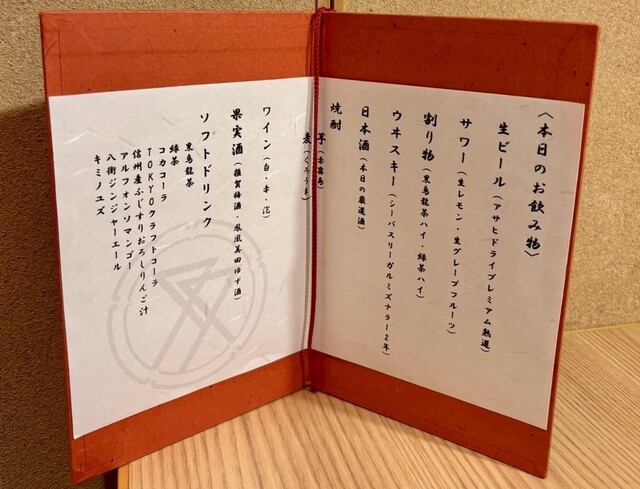 〈本日のお飲み物〉
生ビール(アサヒドライプレミアム熟選)
サワー(生レモン・生グレープフルーツ)
割り物(黒烏龍茶ハイ・緑茶ハイ)
ウヰスキー(シーバスリーガルミズナラ12年)
日本酒(本日の厳選酒)
焼酎
芋(赤霧島)
麦(くろうま)
ワイン(白・赤・泡)
果実酒(雑賀梅酒・鳳凰美田ゆず酒)
ソフトドリンク
黒烏龍茶
緑茶
コカコーラ
TOKYOクラフトコーラ
信州産ふじすりおろしりんご汁
アルフォンソマンゴー
八街ジンジャーエール
キミノユズ